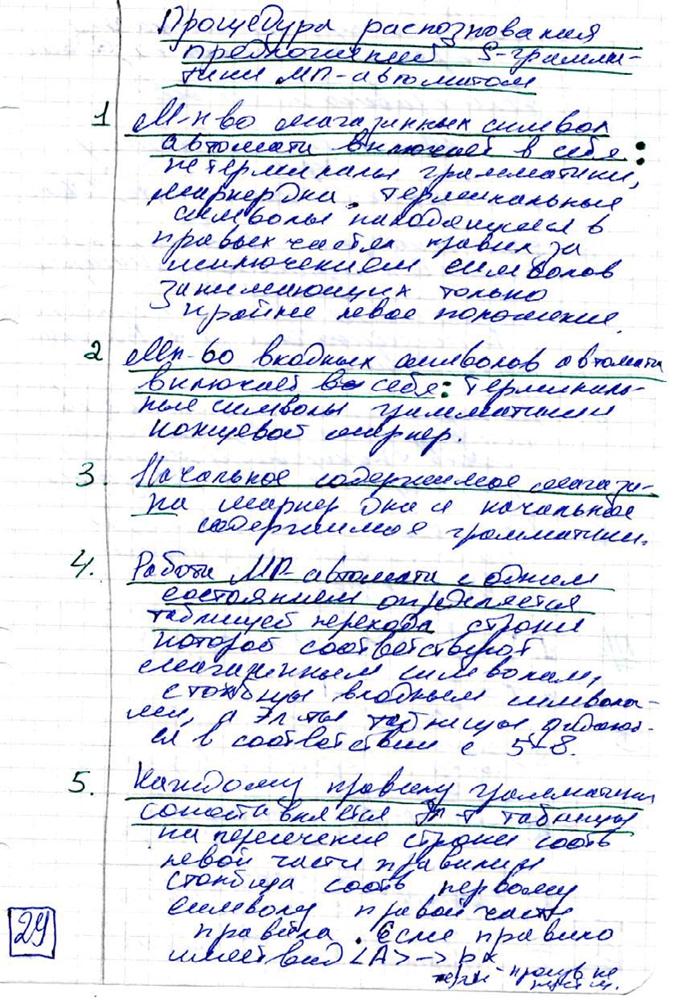 Процедура распознования
предложений S-грамма-
тики МП-автоматом
1 Мн-во магазинных символ
автомата включает в себя:
нетерминалы грамматики,
маркер дна, терминальные
символы находящиеся в
правых частях правил за
исключением символов
занимающих только
крайнее левое положение.
2 Мн-во входных символов автомата
включает в себя: терминаль-
ные символы грамматики
концевой маркер.
3. Начальное содержимое магази-
на маркер дна и начальное
содержимое грамматики.
4. Работа МП-автомата с одним
состоянием определяется
таблицей перехода строки
которой соответствуют
магазинным символам,
столбцы входным символа-
ми, а эл-ты таблицы
в соответствии с 5-8.
5. Каждому правилу грамматики
сопоставляется эл-т таблицы
на пересечение строки соотв
левой части правила и
столбца соотв первому
символу правой части
правила. Если правило
имеет вид <A> -> bα
29